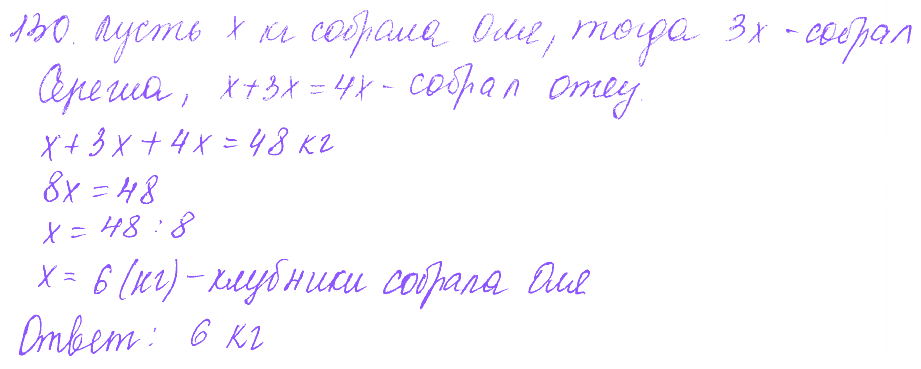 130. Пусть х кг собрала Оля, тогда 3х - собрал
Сережа, х+3х=4х - собрал отец.
х+3х+4х=48 кг
8х=48
х=48:8
х=6(кг) - клубники собрала Оля
Ответ: 6 кг